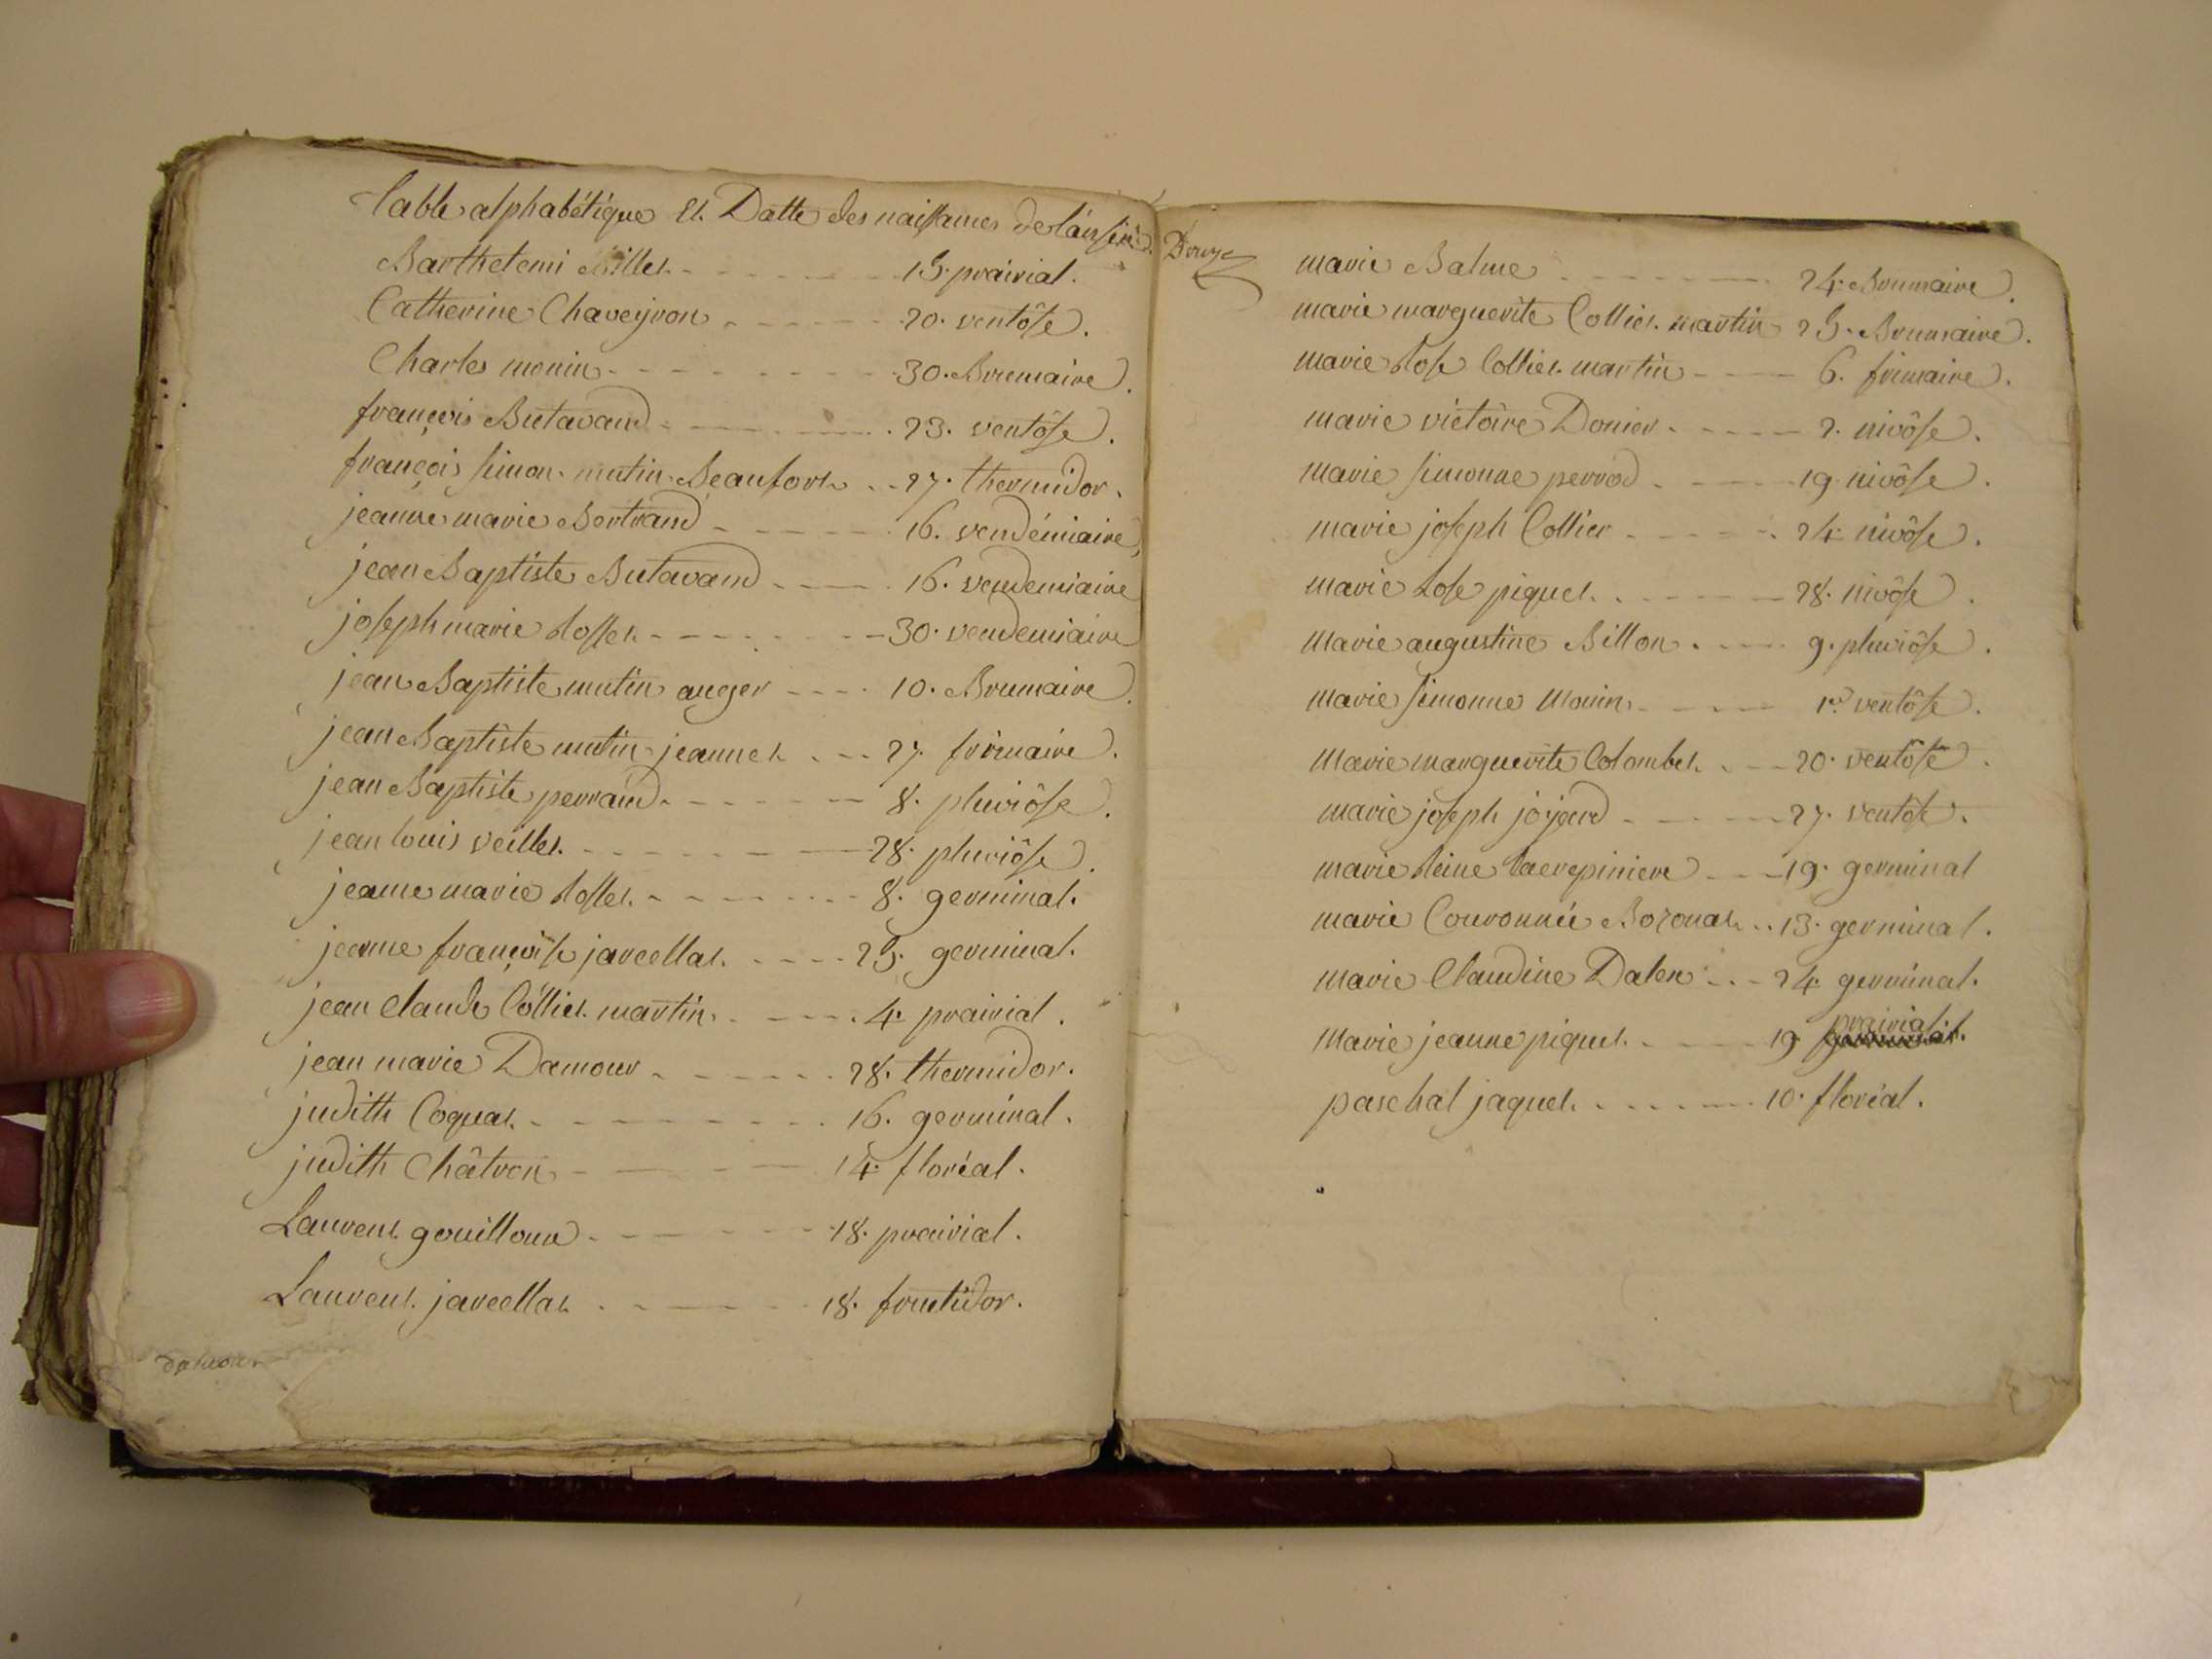 Table alphabétique Et Datte des naissances de l'an six
Barthelemi Millet - - - 15. prairial.
Catherine Chaveyron - - - 20. ventôse.
Charles monin - - - 30. Brumaire.
françois Butavand - - - 23. ventôse.
françois simon mutin Beaufort - - - 27. thermidor.
jeanne marie Bertrand - - - 16. vendémiaire
jean Baptiste Butavand - - - 16. vendemiaire
joseph marie Rosset - - - 30. vendemiaire
jean Baptiste mutin auger - - - 10. Brumaire.
jean Baptiste mutin jeannet - - - 27. frimaire.
jean Baptiste perrand - - - 8. pluviôse.
jean louis veillet - - - 28. pluviôse.
jeanne marie Rosset - - - 8. germinal.
jeanne françoise jarcellat - - - 25. germinal.
jean claude Colliet martin - - - 4. prairial.
jean marie Damour - - - 28. thermidor.
judith Coquat - - - 16. germinal.
judith Châtron - - - 14. floréal.
Laurent gouilloux - - - 18. prairial.
Laurent jarcellat - - - 18. fructidor.
damour
marie Balme - - - 24. Brumaire.
marie marguerite Colliet martin 25. Brumaire.
marie Rose Colliet martin - - - 6. frimaire.
marie victoire Donier - - - 2. nivôse.
marie simonne perrod - - - 19. nivôse.
marie joseph Collier - - - 24. nivôse.
marie Rose piquet - - - 28. nivôse.
marie augustine Billon - - - 9. pluviôse.
marie simonne Monin - - - 1er ventôse.
Marie marguerite Colombet - - - 20. ventôse.
marie joseph jojard - - - 27. ventôse.
marie Reine Lacrepiniere - - - 19. germinal
marie Couronnée Bozonat - - 13. germinal.
marie Claudine Dalen - - - 24. germinal.
Marie jeanne piquet - - - 19. prairial.
paschal jaquet - - - 10. floréal.